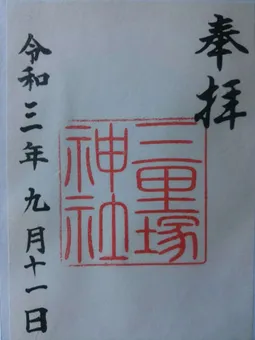 奉拝
三重塚
神社
令和三年九月十一日